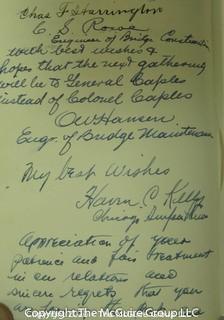 Chas F Harrington
C. S. Rowe
Engineer of Bridge Construction
with best wishes &
hopes that the next gathering
will be to General Caples
instead of Colonel Caples
O W Hansen
Engr. of Bridge Maintenance
My best Wishes
C. Kelly
Chicago
Appreciation of your
patience and fair treatment
in our relations and
sincere regrets that you
are
Copyright From The McGuire Group LLC